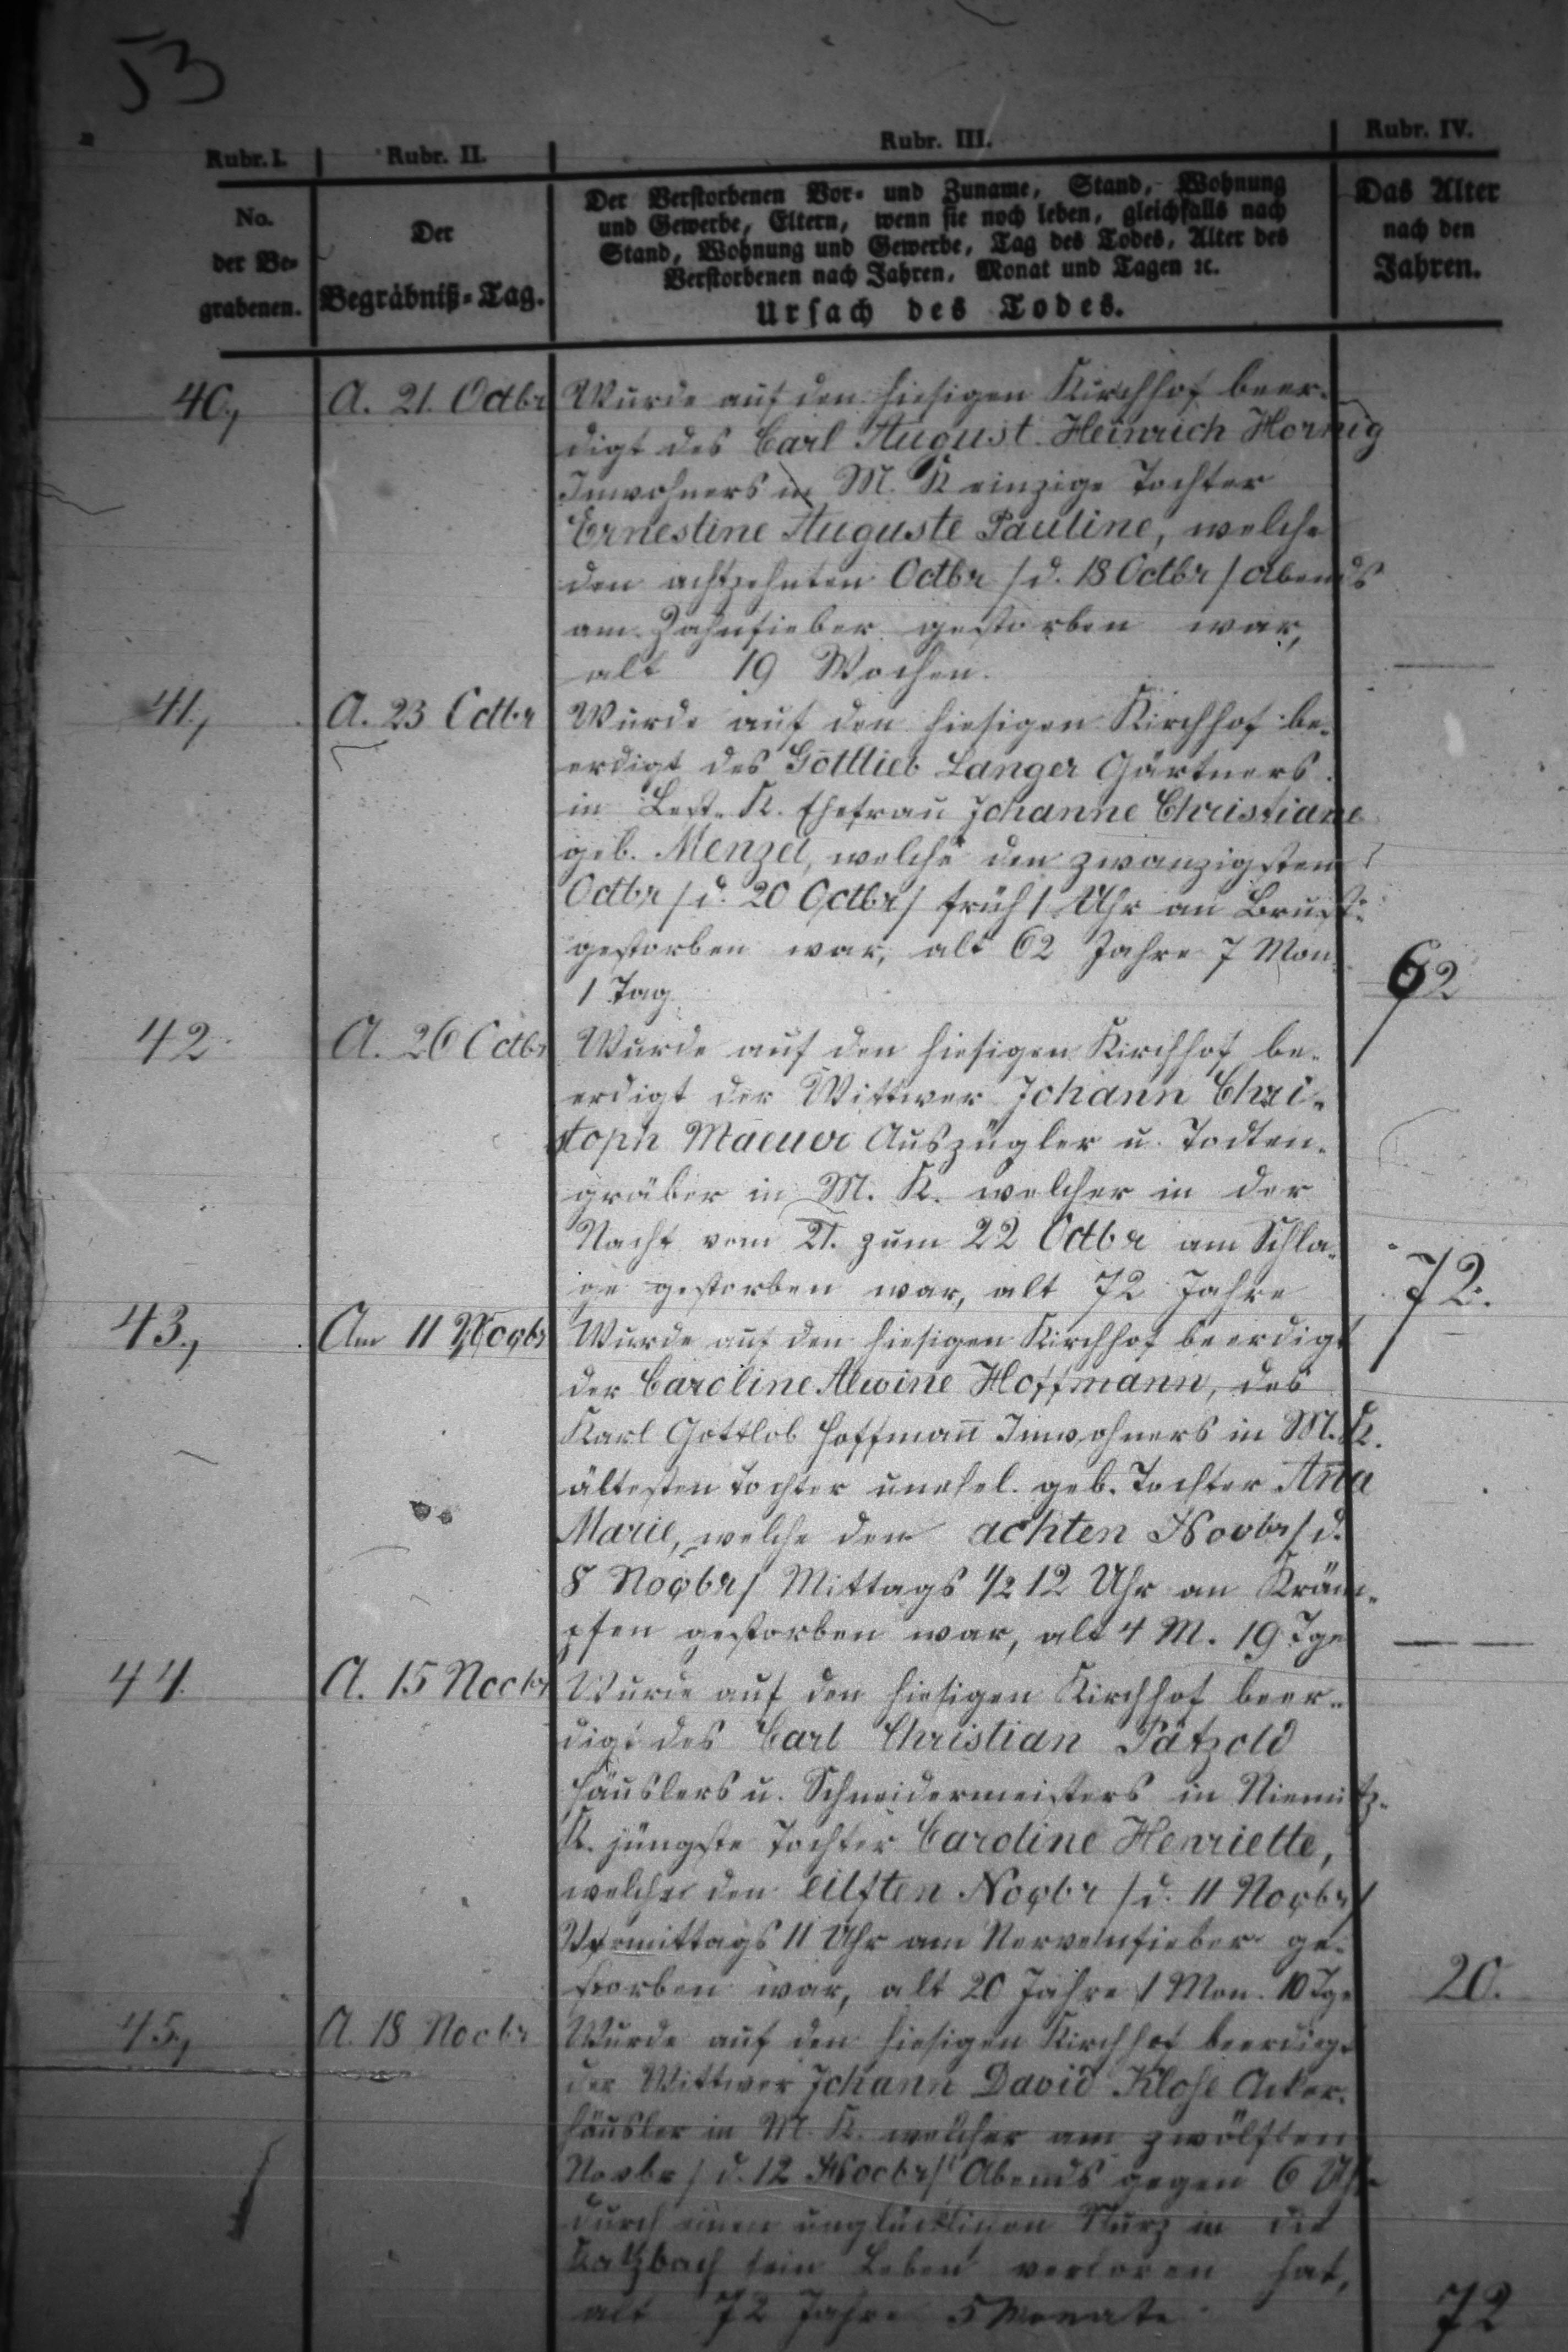 53
Rubr. I. Rubr. II. Rubr. III. Rubr. IV.
No. der Be-grabenen.
Der Begräbniß-Tag.
Der Verstorbenen Vor- und Zuname, Stand, Wohnung
und Gewerbe, Eltern, wenn sie noch leben, gleichfalls nach
Stand, Wohnung und Gewerbe, Tag des Todes, Alter des
Verstorbenen nach Jahren, Monat und Tagen ꝛc.
Ursach des Todes.
Das Alter
nach den
Jahren.
40, A. 21. Octbr Wurde auf den hiesigen Kirchhof beer-
digt des Carl August Heinrich Hornig
Inwohners in M. K einzige Tochter
Ernestine Auguste Pauline, welche
den achtzehnten Octbr /d. 18 Octbr/ abends
am Zahnfieber gestorben war,
alt 19 Wochen.
41, A. 23 Octbr Wurde auf den hiesigen Kirchhof be-
erdigt des Gottlieb Langer Gärtners
in K. Ehefrau Johanne Christiane
geb. Menzel, welche den zwanzigsten
Octbr /d. 20 Octbr/ früh 1 Uhr an Brust-
gestorben war, alt 62 Jahre 7 Mon. 62
1 Tag
42 A. 26 Octbr Wurde auf den hiesigen Kirchhof be-
erdigt der Wittwer Johann Chri-
stoph Auszügler u. Todten-
gräber in M. K. welcher in der
Nacht vom 21. zum 22 Octbr am Schla-
ge gestorben war, alt 72 Jahre 72.
43., Am 11 Novbr Wurde auf den hiesigen Kirchhof beerdigt
der Caroline Alwine Hoffmann, des
Karl Gottlob Hoffmañ Inwohners in M. K.
ältesten Tochter unehel. geb. Tochter Aña
Marie, welche den achten Novbr /d.
8 Novbr/ Mittags 1/2 12 Uhr an Kräm-
pfen gestorben war, alt 4 M. 19 Tge
44. A. 15 Novbr Wurde auf den hiesigen Kirchhof beer-
digt des Carl Christian Pätzold
Häuslers u. Schneidermeisters in Niemitz-
K. jüngste Tochter Caroline Henriette,
welche den eilften Novbr /d. 11 Novbr/
Vormittags 11 Uhr am Nervenfieber ge-
storben war, alt 20 Jahre 1 Mon. 10 Tge 20.
45., A. 18 Novbr Wurde auf den hiesigen Kirchhof beerdigt
der Wittwer Johann David Klose Acker-
häusler in M. K. welcher am zwölften
Novbr /d. 12 Novbr/ Abends gegen 6 Uhr
durch einen unglücklichen Sturz in die
Katzbach sein Leben verloren hat,
alt 72 Jahre 5 Monate 72